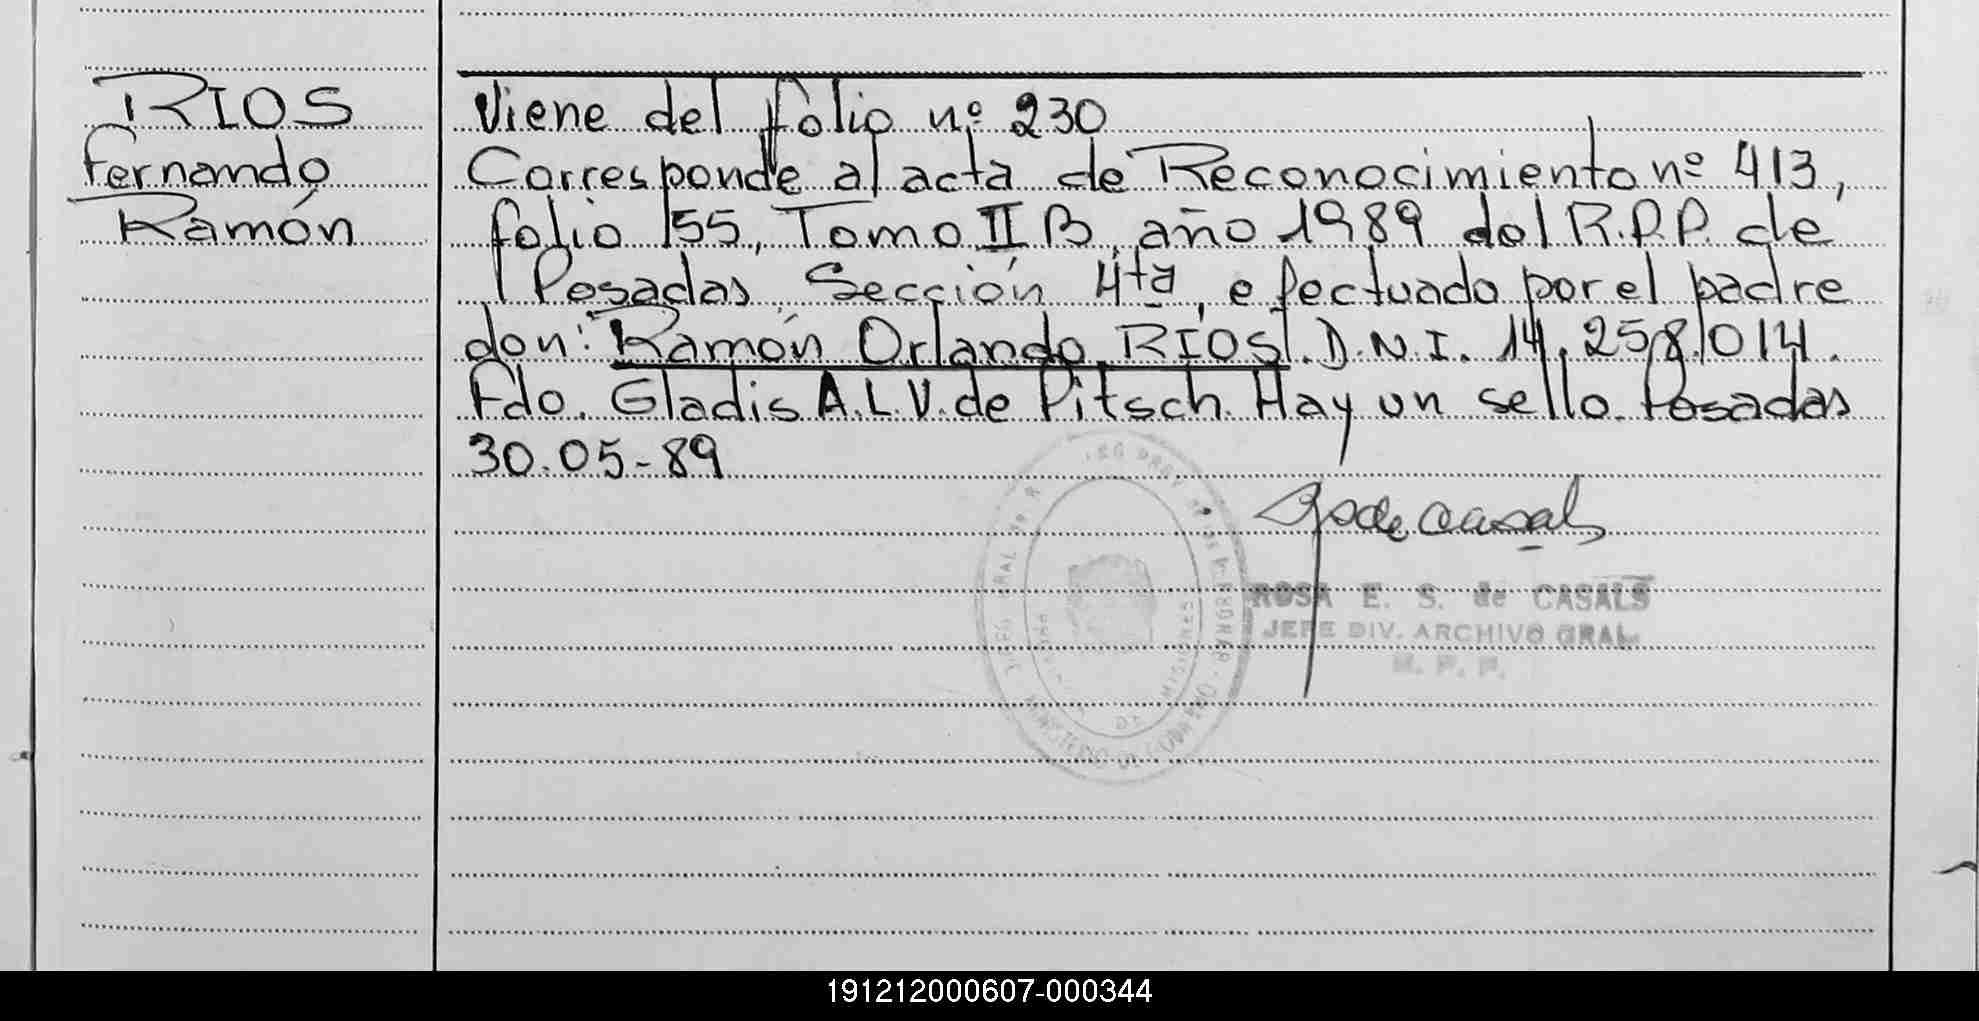 RIOS
Fernando
Ramón
Viene del folio nº 230
Corresponde al acta de Reconocimiento nº 413,
folio 155, Tomo II B, año 1989 del R.P.P. de
Posadas, Sección 4ta, efectuado por el padre
don: Ramón Orlando RIOS. D.N.I. 14.258.014.
Fdo. Gladis A.L.V. de Pitsch. Hay un sello. Posadas
30.05-89
de Casals
ROSA E. S. de CASALS
JEFE DIV. ARCHIVO GRAL.
R. P. P.
MINISTERIO DE GOBIERNO
MISIONES
191212000607-000344